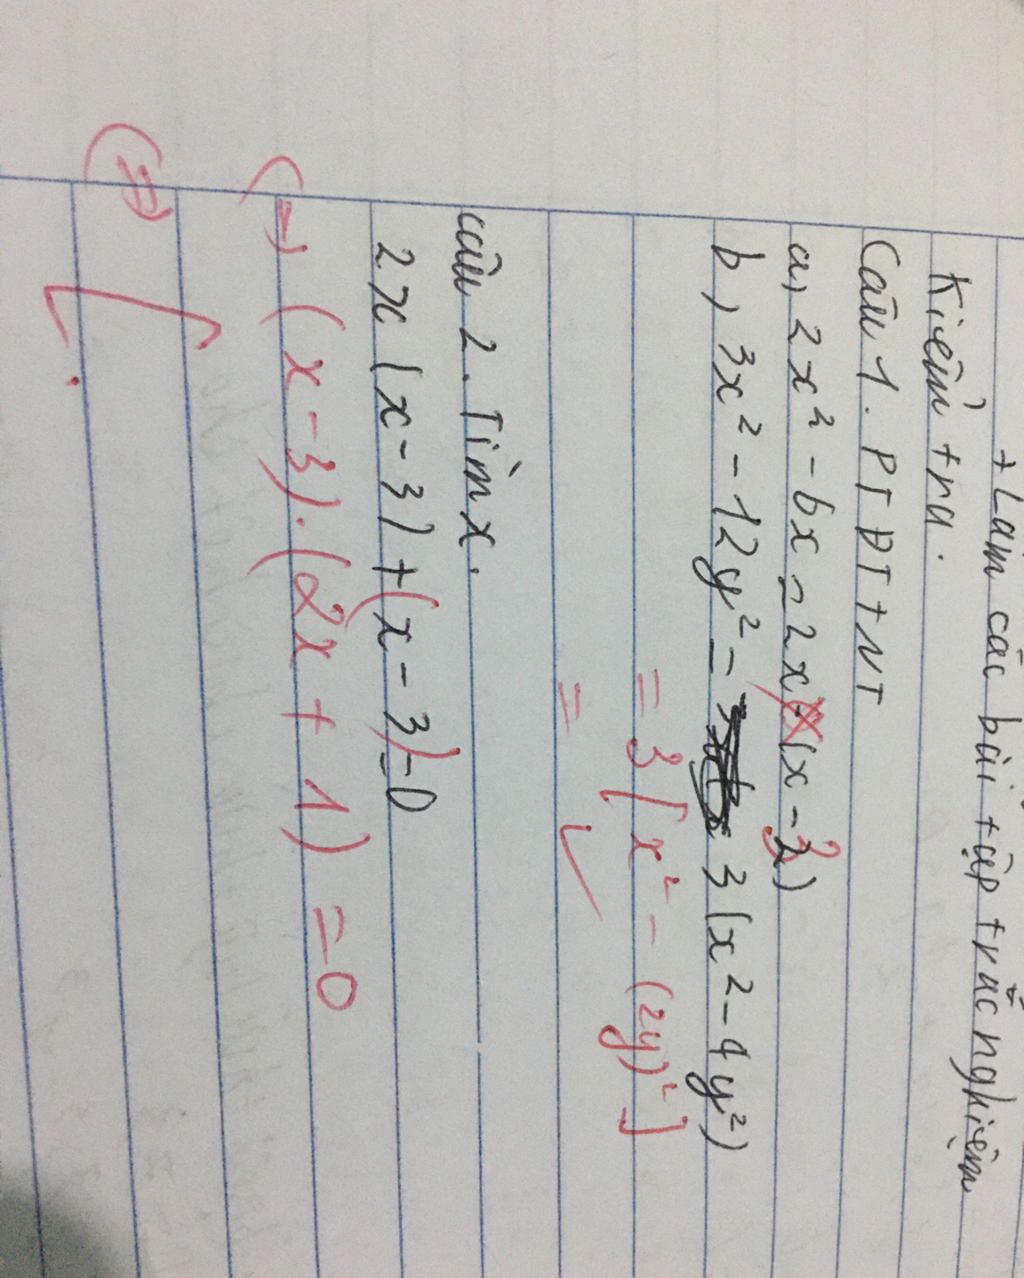 + Làm các bài tập trắc nghiệm
Kiểm tra.
Câu 1. PTĐT+NT
a, 2x² - 6x = 2x (x - 3)
b, 3x² - 12y² = 3(x² - 4y²)
= 3[x² - (2y)²]
=
Câu 2. Tìm x.
2x(x-3)+(x-3)=0
(=) (x-3).(2x+1)=0
(=) [